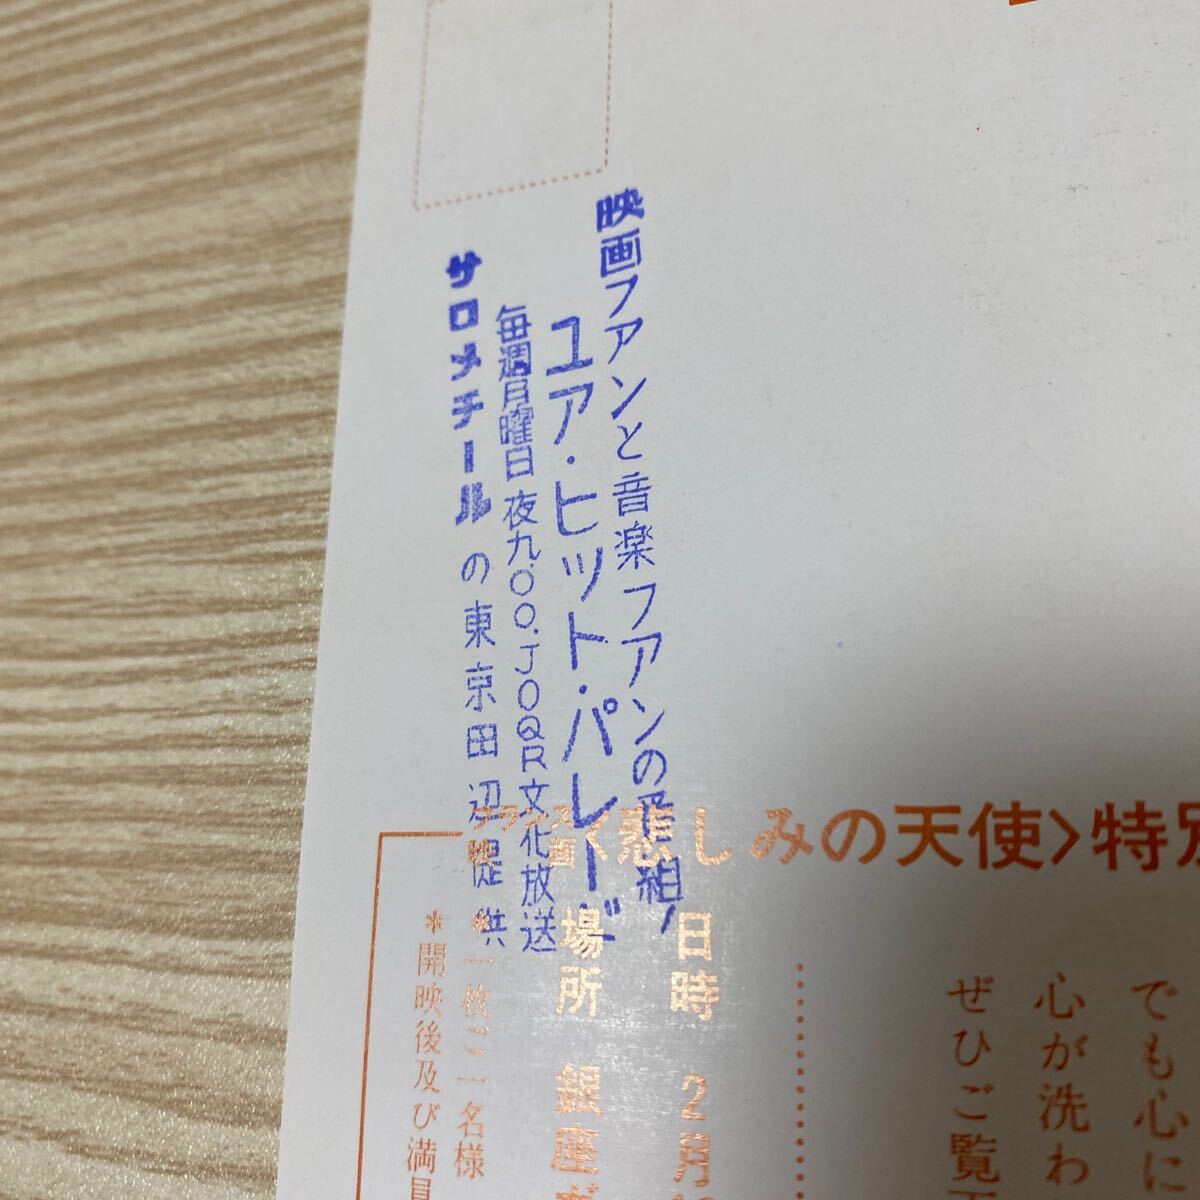 映画ファンと音楽ファンの番組!
ユア・ヒット・パレード
毎週月曜日夜九.00.JOQR文化放送
サロメチールの東京田辺提供
フランス映画〈悲しみの天使〉特別
でも心に
心が洗わ
ぜひご覧
日時 2月
場所 銀座
*一枚ご一名様
*開映後及び満員